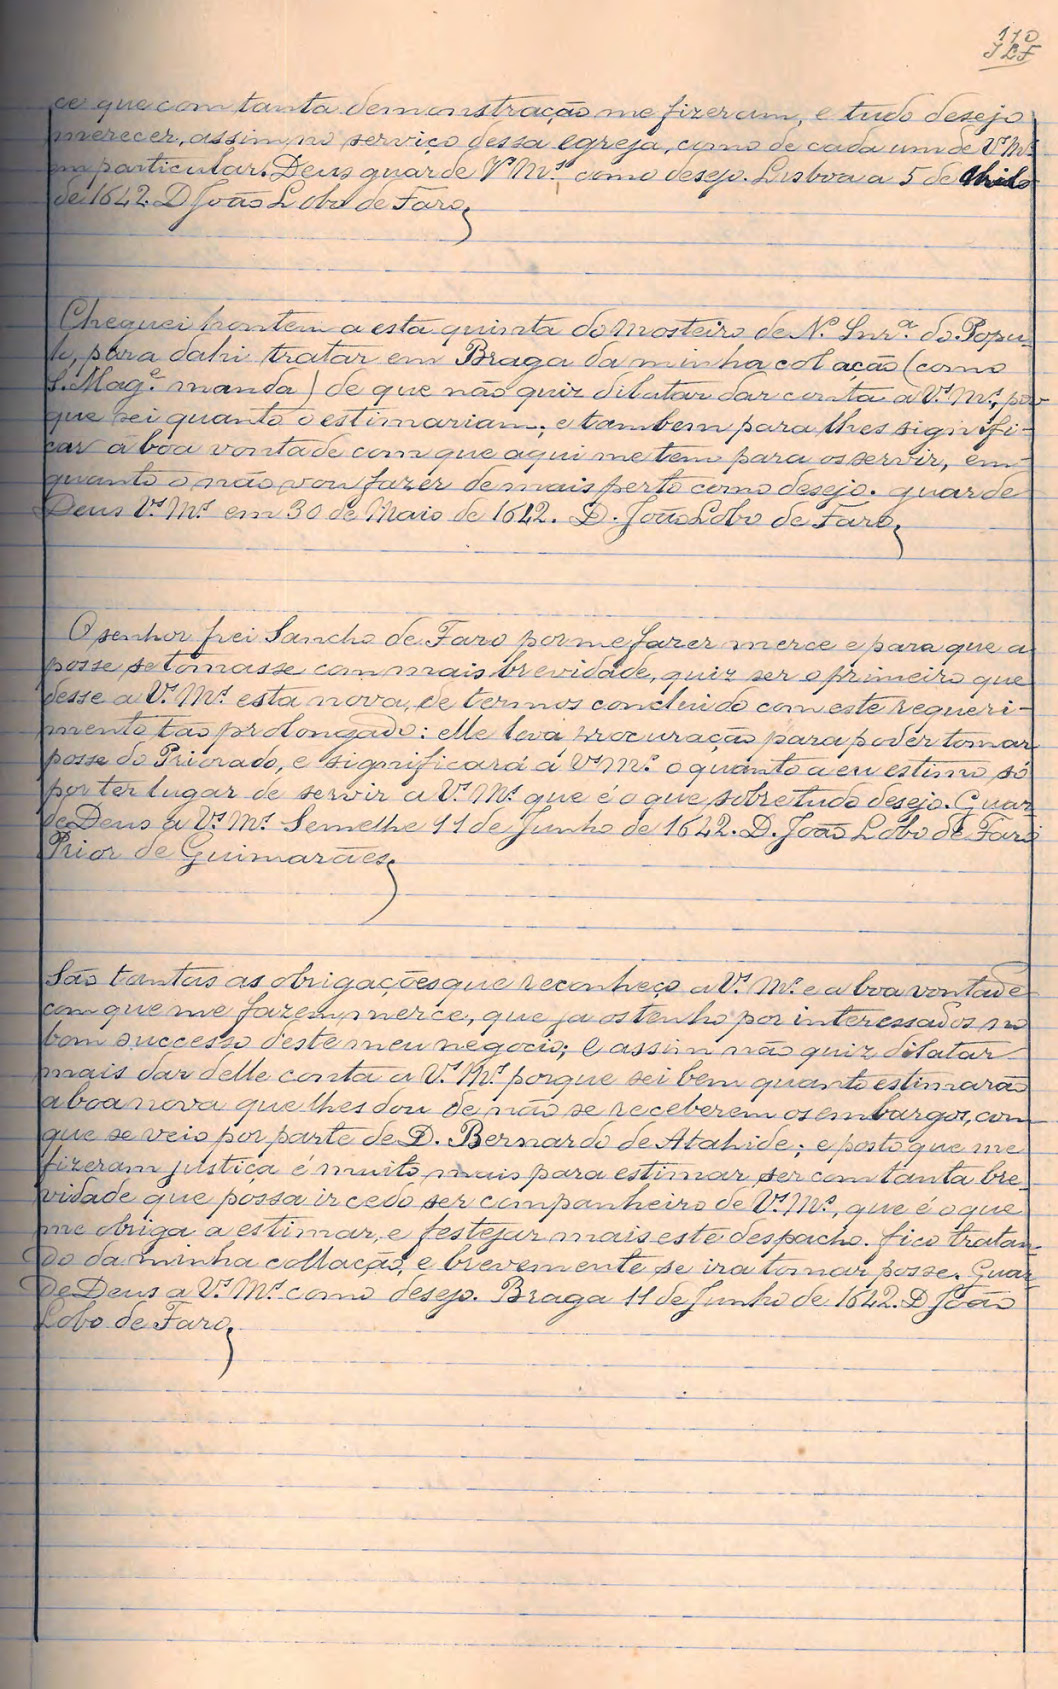 110
JLF
ce que com tanta demonstração me fizeram, e tudo desejo
merecer, assim no serviço dessa egreja, como de cada um de V.ˢ M.ˢ
em particular. Deus guarde V.ˢ M.ˢ como desejo. Lisboa a 5 de
de 1642. D João Lobo de Faro,
Cheguei hontem a esta quinta do Mosteiro de N.ª Snr.ª do Popu-
lo, para dahi tratar em Braga da minha colação (como
S. Mag.ᵉ manda) de que não quiz dilatar dar conta a V.ˢ M.ˢ, por
que sei quanto o estimariam; e tambem para lhes signifi-
car a boa vontade com que aqui me tem para os servir, em-
quanto o não vou fazer de mais perto como desejo. guarde
Deus V.ˢ M.ˢ em 30 de Maio de 1642. D. João Lobo de Faro,
O senhor frei Sancho de Faro por me fazer merce e para que a
posse se tomasse com mais brevidade, quiz ser o primeiro que
desse a V.ˢ M.ˢ esta nova, de termos concluido com este requeri-
mento tão prolongado: elle leva procuração para poder tomar
posse do Priorado, e significará á V.ˢ M.ˢ o quanto a eu estimo só
por ter lugar de servir a V.ˢ M.ˢ que é o que sobretudo desejo. Guar
de Deus a V.ˢ M.ˢ Semelhe 11 de Junho de 1642. D. João Lobo de Faro
Prior de Guimarães,
São tantas as obrigações que reconheço a V.ˢ M.ˢ e a boa vontade
com que me fazem merce, que ja os tenho por interessados no
bom successo deste meu negocio; e assim não quiz dilatar
mais dar delle conta a V.ˢ M.ˢ porque sei bem quanto estimarão
a boa nova que lhes dou de não se receberem os embargos, com
que se veio por parte de D. Bernardo de Atahide; e posto que me
fizeram justiça é muito mais para estimar ser com tanta bre-
vidade que possa ir cedo ser companheiro de V.ˢ M.ˢ, que é o que
me obriga a estimar, e festejar mais este despacho. fico tratan-
do da minha collação, e brevemente se ira tomar posse. Guar-
de Deus a V.ˢ M.ˢ como desejo. Braga 11 de Junho de 1642. D João
Lobo de Faro,